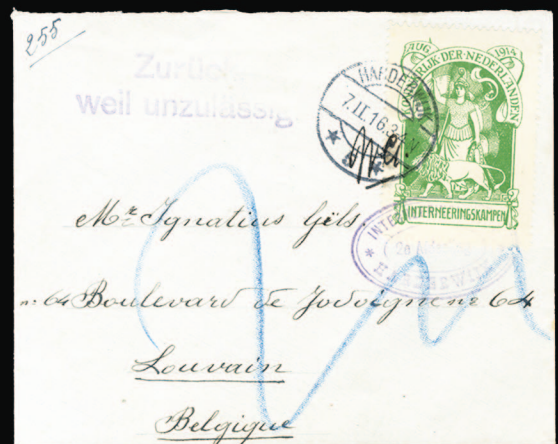 255
Zurück
weil unzulässig.
AUG. 1914
KONINKRIJK·DER·NEDERLANDEN
INTERNEERINGSKAMPEN
HARDERWIJK
7.II.16.3-4N
Mr Ignatius Gïls
no 64 Boulevard de Jodoigne no 64
Louvain
Belgique